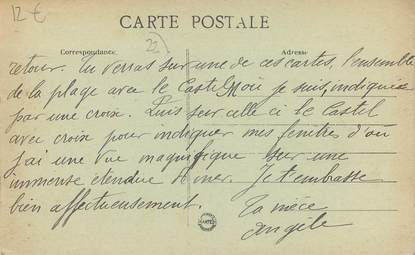 12 €
CARTE POSTALE
22
Correspondance Adresse
retour. Tu verras sur une de ces cartes, l'ensemble
de la plage avec le Castel où je suis indiquée
par une croix. Puis sur celle ci le Castel
avec croix pour indiquer mes fenêtres d'où
j'ai une vue magnifique sur une
immense étendue mer. Je t'embrasse
bien affectueusement. Ta nièce
Angèle
NANTES